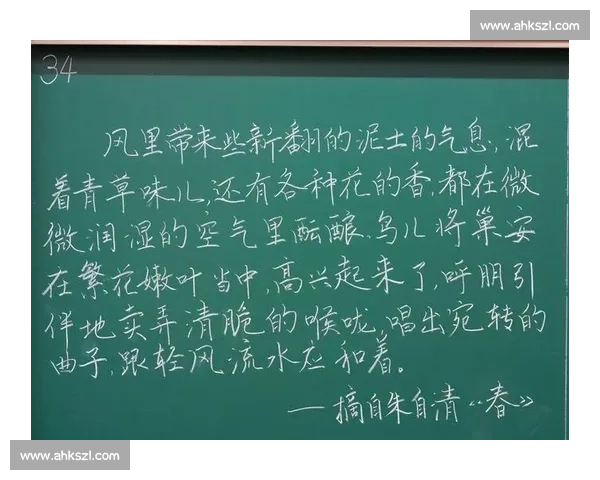 www.ahkszl.com
34
风里带来些新翻的泥土的气息,混
着青草味儿,还有各种花的香,都在微
微润湿的空气里酝酿.鸟儿将巢安
在繁花嫩叶当中,高兴起来了,呼朋引
伴地卖弄清脆的喉咙,唱出宛转的
曲子,跟轻风流水应和着。
——摘自朱自清《春》
www.ahkszl.com